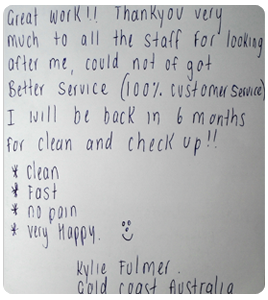 Great work!! Thankyou very
much to all the staff for looking
after me, could not of got
Better service (100% customer service)
I will be back in 6 months
for clean and check up!!
* clean
* Fast
* no pain
* very Happy.
Kylie Fulmer.
Gold coast Australia